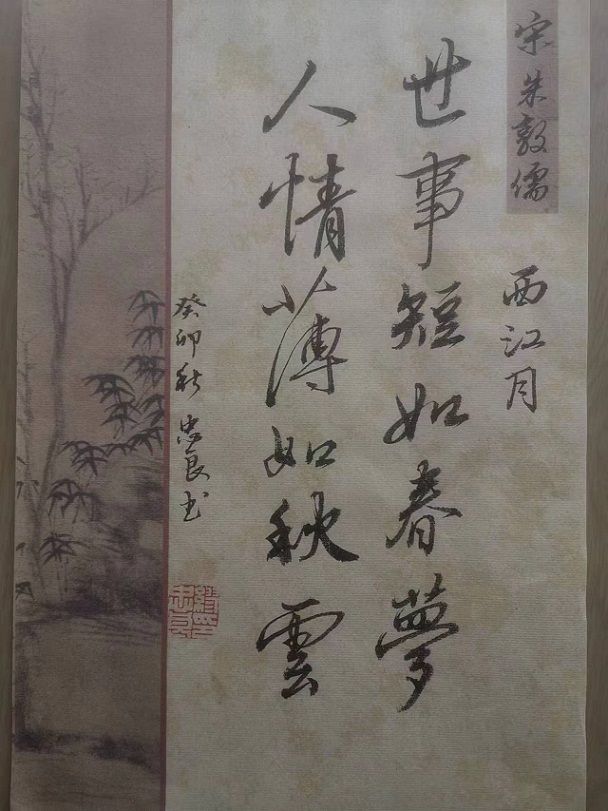 宋朱敦儒
西江月
世事短如春夢
人情薄如秋雲
癸卯秋 忠良书